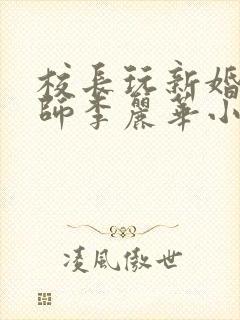 校長玩新婚
師李麗華小
凌風傲世